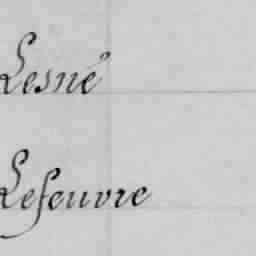 Lesné
Lefeuvre